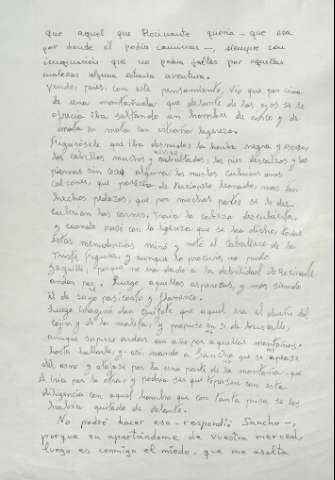 que aquel que Rocinante quería - que era
por donde él podía caminar -, siempre con
imaginación que no podía faltar por aquellas
malezas alguna extraña aventura.
Yendo, pues, con este pensamiento, vio que por cima
de una montañuela que delante de los ojos se le
ofrecía iba saltando un hombre de risco y de
mata en mata con extraña ligereza.
Figurósele que iba desnudo, la barba negra y espesa,
los cabellos muchos y rabultados, los pies descalzos y las
piernas sin cosa alguna; los muslos cubrían unos
calzones, que de terciopelo leonado, mas tan
hechos pedazos, que por muchas partes se le des-
cubrían las carnes. Traía la cabeza descubierta,
y cuando pasó con la ligereza que se ha dicho, todas
estas menudencias miró y notó el caballero de la
Triste figura, y aunque lo procuró, no pudo
seguille, porque no era dado a la debilidad de Rocinante
andar por aquellas asperezas, y más siendo
él de suyo pasicorto y flemático.
Luego imaginó don Quijote que aquel era el dueño del
cojín y de la maleta, y propuso en sí de buscalle,
aunque supiese andar un año por aquellas montañas,
hasta hallarle, y así mandó a Sancho que se apease
del asno y atajase por la una parte de la montaña, que
él iría por la otra y podría ser que topasen con esta
diligencia con aquel hombre que con tanta prisa se les
había quitado de delante.
No podré hacer eso - respondió Sancho -,
porque en apartándome de vuestra merced,
luego es conmigo el miedo, que me asalta